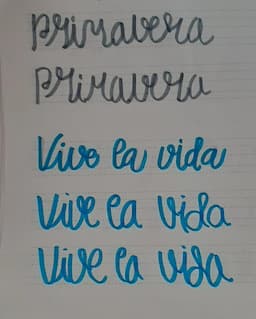 primavera
primavera
Vive la vida
Vive la vida
Vive la vida